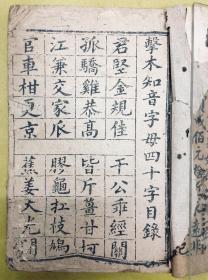 擊木知音字母四十字目錄
君堅金規佳　干公乖經關
孤驕雞恭高　皆斤薑甘柯
江兼交家瓜　膠龜扛枝鳩
官車柑更京　蕉姜大光
佰元